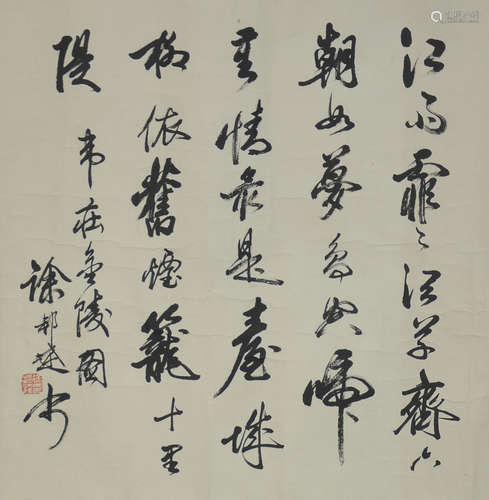 江雨霏霏江草齊六
朝如夢鳥空啼
無情最是臺城
柳依舊煙籠十里
堤 韋莊金陵圖
徐邦達書